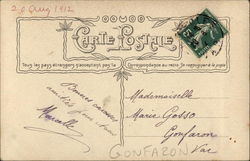 20 Aug 1912
CARTE POSTALE
Tous les pays étrangers n'acceptent pas la Correspondance au recto. Se renseigner à la poste
Mademoiselle
Marie Gasso
Gonfaron
Var
Bonnes
amitiés
Marcelle
GONFARON